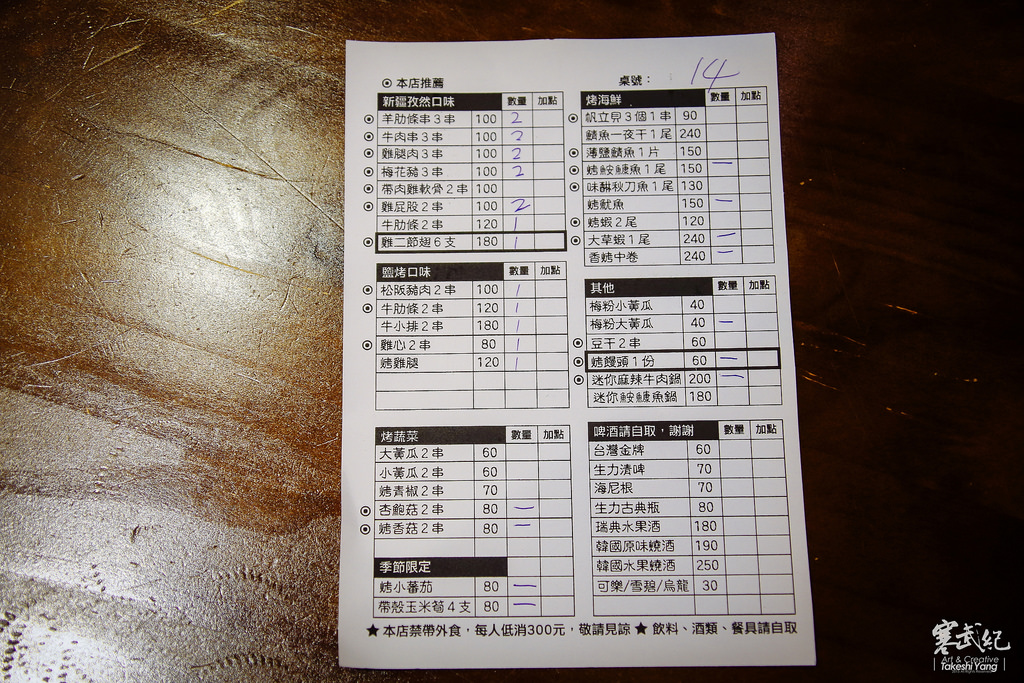 ⊙本店推薦
桌號： 14
新疆孜然口味 數量 加點
⊙ 羊肋條串3串 100 2
⊙ 牛肉串3串 100 2
⊙ 雞腿肉3串 100 2
⊙ 梅花豬3串 100 2
⊙ 帶肉雞軟骨2串 100
⊙ 雞屁股2串 100 2
牛肋條2串 120 1
⊙ 雞二節翅6支 180 1
鹽烤口味 數量 加點
⊙ 松阪豬肉2串 100 1
⊙ 牛肋條2串 120 1
牛小排2串 180 1
⊙ 雞心2串 80 1
烤雞腿 120 1
烤蔬菜 數量 加點
大黃瓜2串 60
小黃瓜2串 60
烤青椒2串 70
⊙ 杏鮑菇2串 80 一
⊙ 烤香菇2串 80 一
季節限定
烤小蕃茄 80 一
帶殼玉米筍4支 80 一
烤海鮮 數量 加點
⊙ 帆立貝3個1串 90
鯖魚一夜干1尾 240
⊙ 薄鹽鯖魚1片 150
⊙ 烤鮟鱇魚1尾 150 一
⊙ 味醂秋刀魚1尾 130
烤魷魚 150 一
⊙ 烤蝦2尾 120
⊙ 大草蝦1尾 240 一
香烤中卷 240 一
其他 數量 加點
梅粉小黃瓜 40
梅粉大黃瓜 40 一
⊙ 豆干2串 60
⊙ 烤饅頭1份 60 一
⊙ 迷你麻辣牛肉鍋 200 一
迷你鮟鱇魚鍋 180
啤酒請自取，謝謝 數量 加點
台灣金牌 60
生力清啤 70
海尼根 70
生力古典瓶 80
瑞典水果酒 180
韓國原味燒酒 190
韓國水果燒酒 250
可樂/雪碧/烏龍 30
★本店禁帶外食，每人低消300元，敬請見諒★飲料、酒類、餐具請自取
寒武紀
Art & Creative
Takeshi Yang